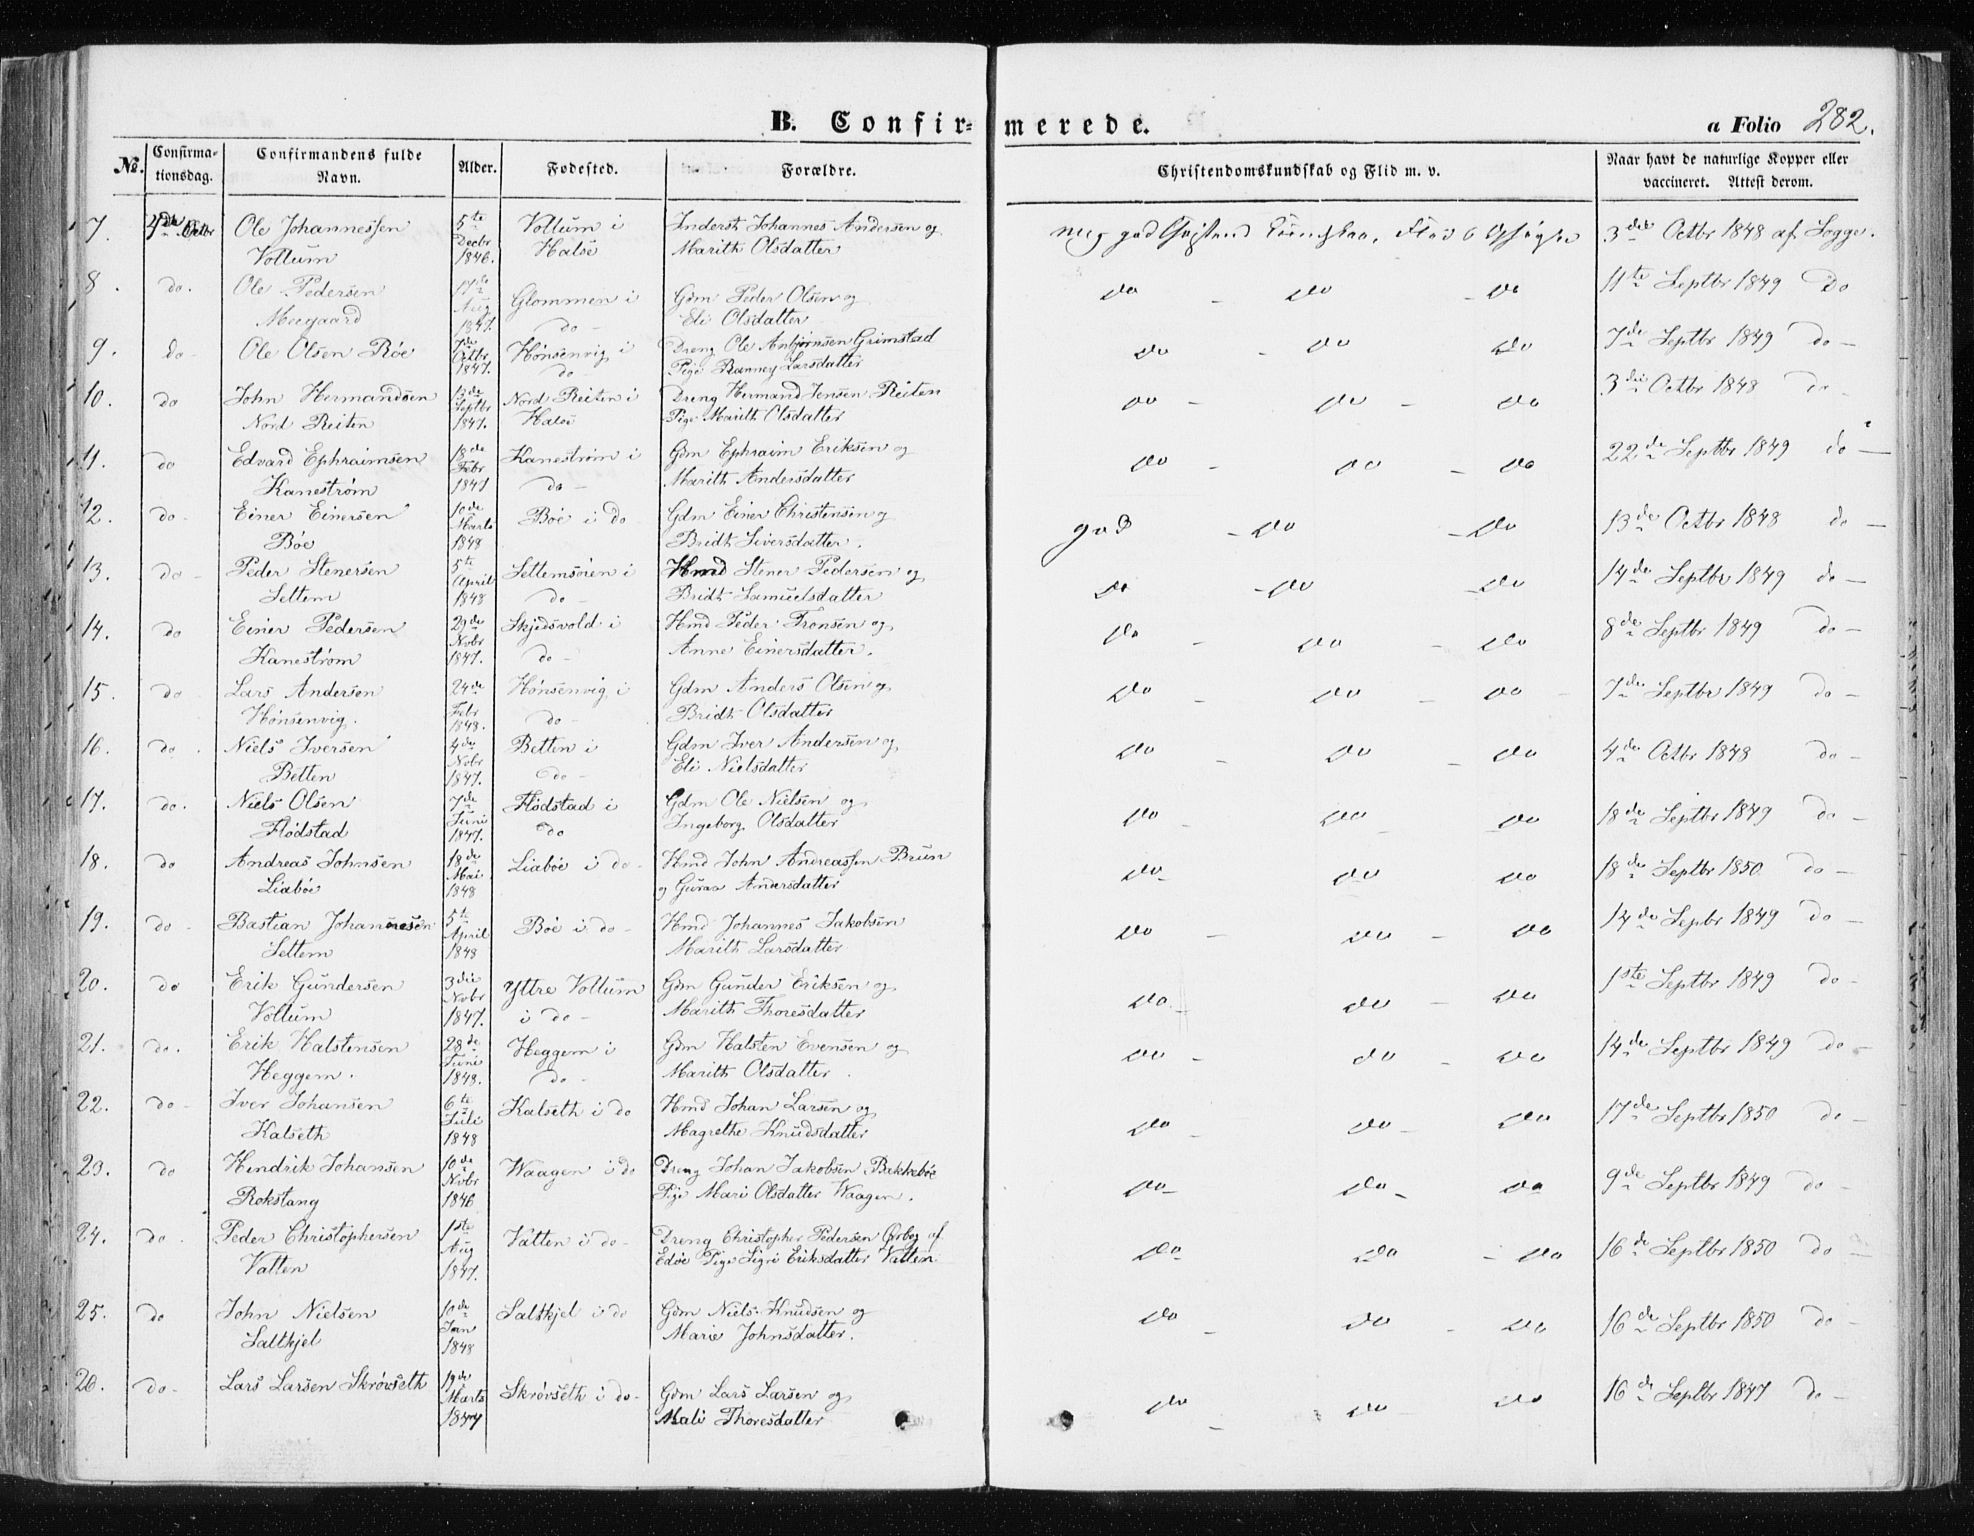 B. Confir= merede. a Folio 282.
No. Confirmationsdag. Confirmandens fulde Navn. Alder. Fødested. Forældre. Christendomskundskab og Flid m. v. Naar havt de naturlige Kopper eller vaccineret. Attest derom.
7. 4de Octbr Ole Johannessen Vollum 5te Decbr 1846. Vollum i Halse Inderst Johannes Andersen og Marith Olsdatter meg. god 3die Octbr 1848 af Logge.
8. do. Ole Pedersen Meegaard 17de Aug 1847. Glommen i do - Gdm Peder Olsen og Eli Olsdatter do - do - do 11te Septbr 1849 Do
9. do - Ole Olsen Röe 7de Octbr 1847. Hönsenvig i do - Dreng Ole Anbjörnsen Grimstad Pige Ranney Larsdatter do - do do 7de Septbr 1849 do -
10. do John Hermandsen Nord Reiten 13de Septbr 1847. Nord Reiten i Halse Dreng Hermand Jensen Reiten Pige Marith Olsdatter do - do - do 3die Octbr 1848 do -
11. do Edvard Ephraimsen Kaneström 18de Febr 1847 Kaneström i do - Gdm Ephraim Eriksen og Marith Andersdatter do - do - do 22de Septbr 1849 do -
12. do - Einer Einersen Böe 10de Marts 1848 Böe i do Gdm Einer Christensen og Bridt Siversdatter. god - do - do 13de Octbr 1848 do -
13. do - Peder Stenersen Settem 5te April 1848 Settemsöien i do - Hmd Stener Pedersen og Bridt Samuelsdatter do - do - do 14de Septbr 1849 do -
14. do Einer Pedersen Kaneström 29de Novbr 1847. Skjedsvold i do - Hmd Peder Tronsen og Anne Einersdatter. do - do - do 8de Septbr 1849 do -
15. do Lars Andersen Hönsenvig. 24de Febr 1848. Hönsenvig i do - Gdm Anders Olsen og Bridt Olsdatter do - do - do - 7de Septbr 1849 do -
16. do. Niels Iversen Betten 4de Novbr 1847. Betten i do - Gdm Iver Andersen og Eli Nielsdatter do - do - do 4de Octbr 1848 do -
17. do. Niels Olsen Flödstad 7de Juni 1847. Flödstad i do Gdm Ole Nielsen og Ingeborg Olsdatter do - do - do 18de Septbr 1849 do -
18. do Andreas Johnsen Liaböe 18de Mai 1848 Liaböe i do - Hmd John Andreassen Brun og Guran Andersdatter do - do - do 18de Septbr 1850 do -
19. do - Bastian Johannesen Settem 5te April 1848 Böe i do - Hmd Johannes Jakobsen Marith Larsdatter do - do - do 14de Sepbr 1849 do -
20. do Erik Gundersen Vollum 3die Novbr 1847. Yttre Vollum i do - Gdm Gunder Eriksen og Marith Thoresdatter do - do - do 1ste Septbr 1849 do -
21. do. Erik Halstensen Heggem. 28de Juni 1848. Heggem i do - Gdm Halsten Evensen og Marith Olsdatter. do - do - do 14de Septbr 1849 do -
22. do - Iver Johansen Kalseth 6te Juli 1848 Kalseth i do Hmd Johan Larsen og Magrethe Knudsdatter do - do - do 17de Septbr 1850 do -
23. do Hendrik Johansen Rokstang 10de Novbr 1846 Waagen i do Dreng Johan Jakobsen Bekkeböe Pige Mari Olsdatter Waagen. do - do - do 9de Septbr 1849 do -
24. do. Peder Christophersen Vatten 1ste Aug 1847. Vatten i do - Dreng Christopher Pedersen Örbog af Edöe Pige Sigri Eriksdatter Vatten do do - do 16de Septbr 1850 do -
25. do John Nielsen Saltkjel 10de Jan 1848 Saltkjel i do Gdm Niels Knudsen og Marie Johnsdatter. do - do - do 16de Septbr 1850 do -
26. do - Lars Larsen Skrövseth 19de Marts 1847 Skrövseth i do - Gdm Lars Larsen og Mali Thoresdatter do - do - do 16de Septbr 1847 do -